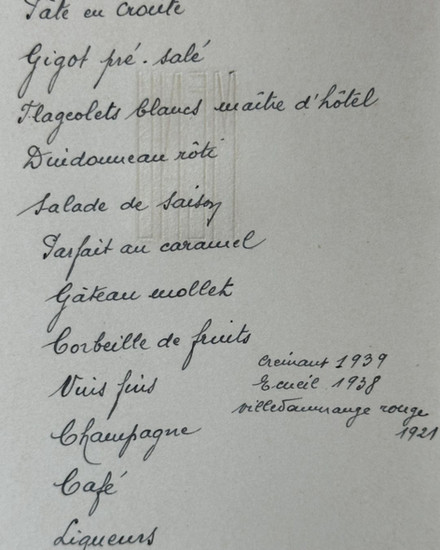 Pâté en croute
Gigot pré-salé
Flageolets blancs maître d'hôtel
Dindonneau rôti
Salade de saison
Parfait au caramel
Gâteau mollet
Corbeille de fruits
Vins fins
Cremant 1939
Ecueil 1938
Villedommange rouge
1921
Champagne
Café
Liqueurs